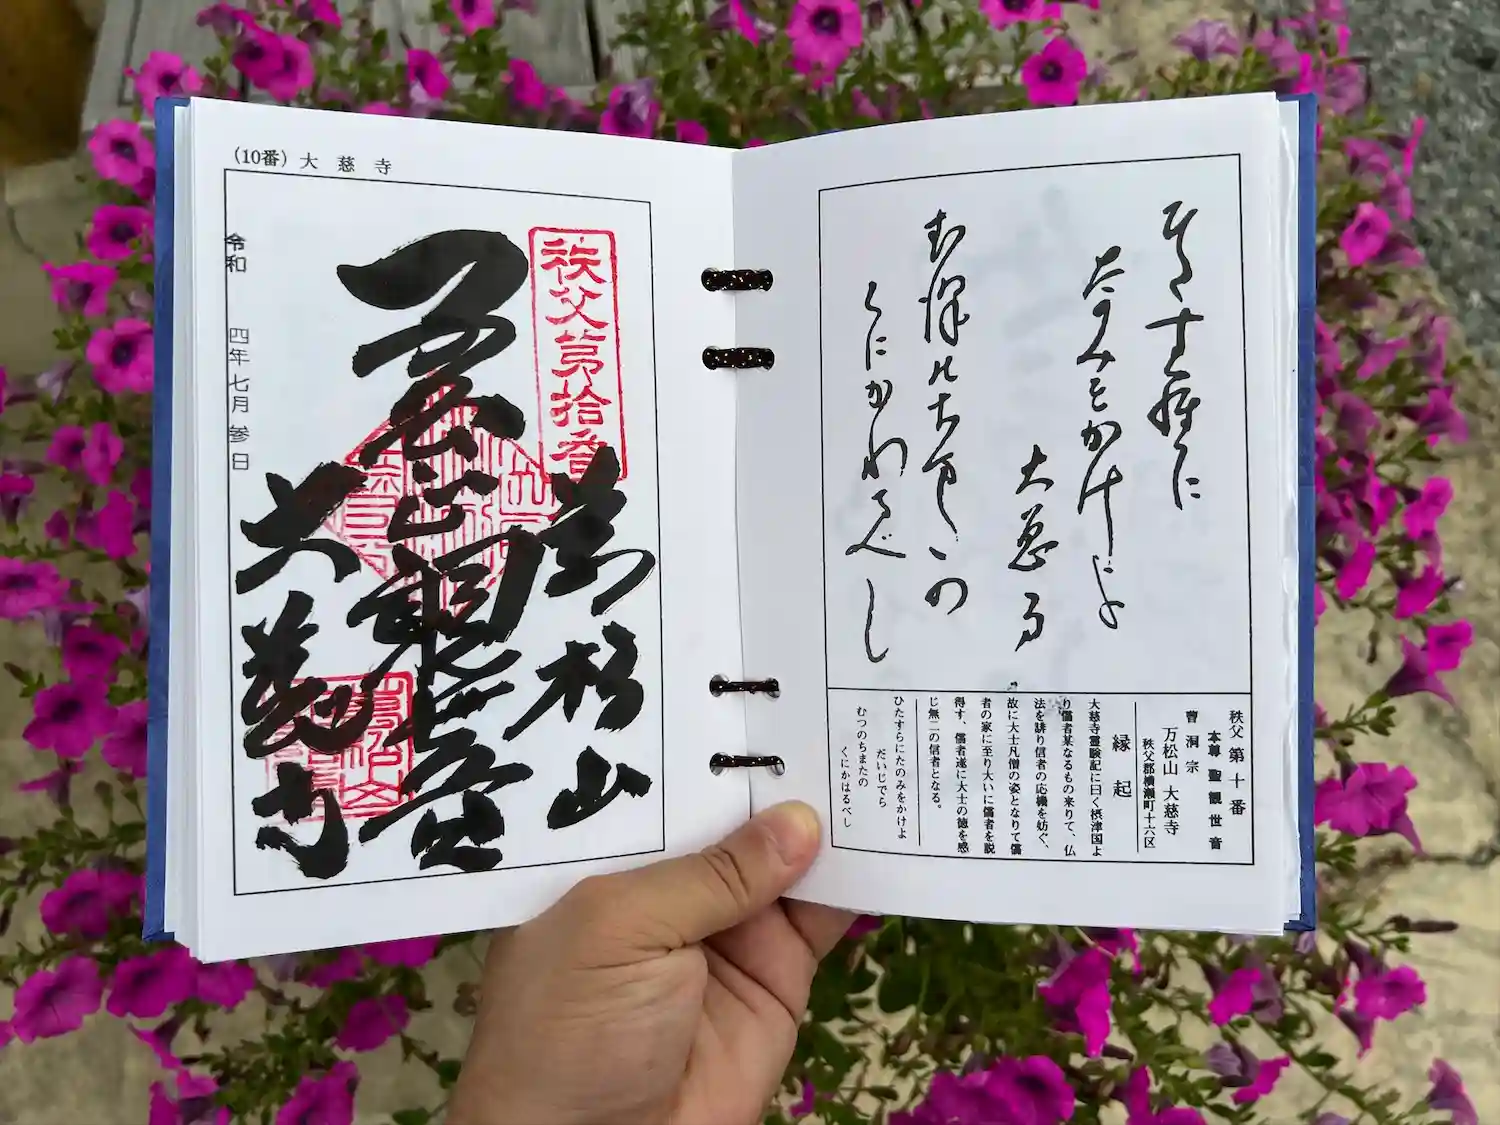 (10番) 大慈寺
令和 四年七月参日
秩父第拾番
万松山
大慈寺
ひたすらに
たのみをかけよ
大慈寺
むつのちまたの
くにかわるべし
秩父 第十番
本尊 聖観世音
曹洞宗
万松山 大慈寺
秩父郡横瀬町十六区
縁起
大慈寺霊験記に曰く摂津国よ
り儒者某なるもの来りて、仏
法を誹り信者の応機を妨ぐ、
故に大士凡僧の姿となりて儒
者の家に至り大いに儒者を説
得す、儒者遂に大士の徳を感
じ無二の信者となる。
ひたすらにたのみをかけよ
だいじでら
むつのちまたの
くにかはるべし